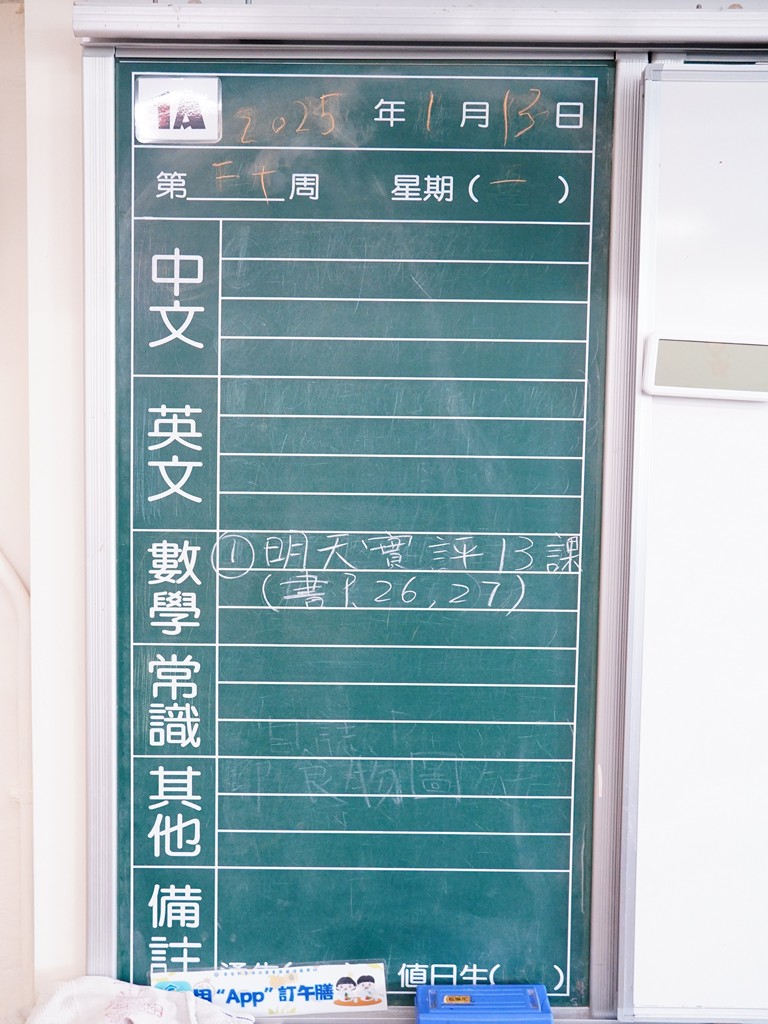 1A 2025 年 1 月 13 日
第 周 星期(一)
中文
英文
數學 ①明天實評13課
(書P.26,27)
常識
其他
食物圖
備註
值日生( )
用“App”訂午膳